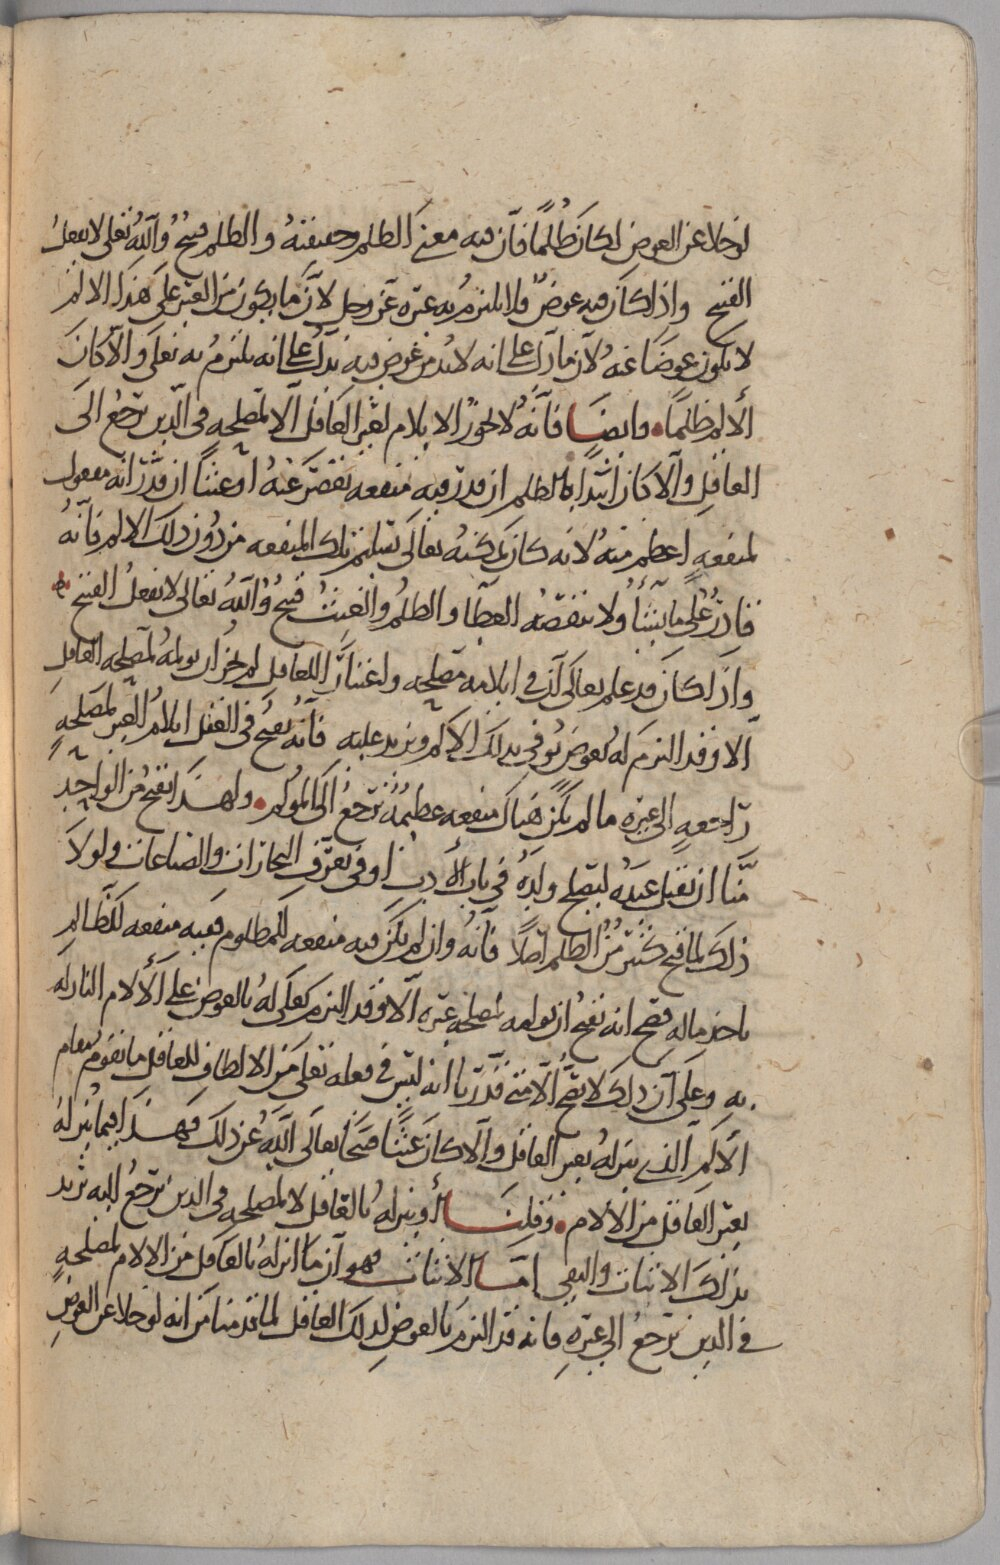 لو خلا عن العوض لكان ظلمًا فان فيه معنى الظلم وحقيقته والظلم قبيح والله تعلى لا يفعل
القبيح واذا كان فيه عوض فلا يلتزم به غيره عز وجل لان ما يكون من الغير على هذا الالم
لا يكون عوضا عنه لان ما دل على انه لا بد من عوض فيه يدل على انه يلتزم به تعلى والا كان
الالم ظلمًا وايضا فانه لا يجوز الايلام لغير العاقل الا لمصلحه فى الدين ترجع الى
العاقل والا كان ابتداه بالظلم ان قدر فيه منفعه تقصر عنه او عبثا ان قدر انه مفعول
لمنفعه اعظم منه لانه كان يمكنه تعالى تسليم تلك المنفعه من دون ذلك الالم فانه
قادر على ما يشأ ولا ينقصه العطآ والظلم والعبث قبيح والله تعالى لا يفعل القبيح
واذا كان قد علم تعالى ان في ايلامه مصلحه واعتبارًا للعاقل لم يجز ان يولمه لمصلحه العاقل
الا وقد التزم له بعوض يوفي بذلك الالم ويزيد عليه فانه يقبح فى العقل ايلام الغير لمصلحه
راجعه الى غيره ما لم يكن هناك منفعه عظيمه ترجع الى المولم ولهذا يقبح من الواحد
منا ان يقتل عبده ليصلح ولده في باب الأدب او فى تعرف التجارات والصناعات ولولا
ذلك لما قبح كثير من الظلم اصلا فانه وان لم يكن فيه منفعه للمظلوم ففيه منفعه للظالم
باخذ ماله فصح انه يقبح ان يولمه لمصلحه غيره الا وقد التزم تعلى له بالعوض على الآلام النازله
به وعلى ان ذلك لا يصح الا متى قدرنا انه ليس في فعله تعلى من الالطاف للعاقل ما يقوم مقام
الالم الذي ينزله بغير العاقل والا كان عبثا قبيحا تعالى الله عن ذلك فهذا فيما ينزله
بغير العاقل من الالام وقلنا او ينزله بالعاقل لا لمصلحه فى الدين ترجع اليه نريد
بذلك الاثبات والنفى اما الاثبات فهو ان ما انزله بالعاقل من الالام لمصلحه
في الدين ترجع الى غيره فانه قد التزم بالعوض لذلك العاقل لما قدمنا من انه لو خلا عن العوض